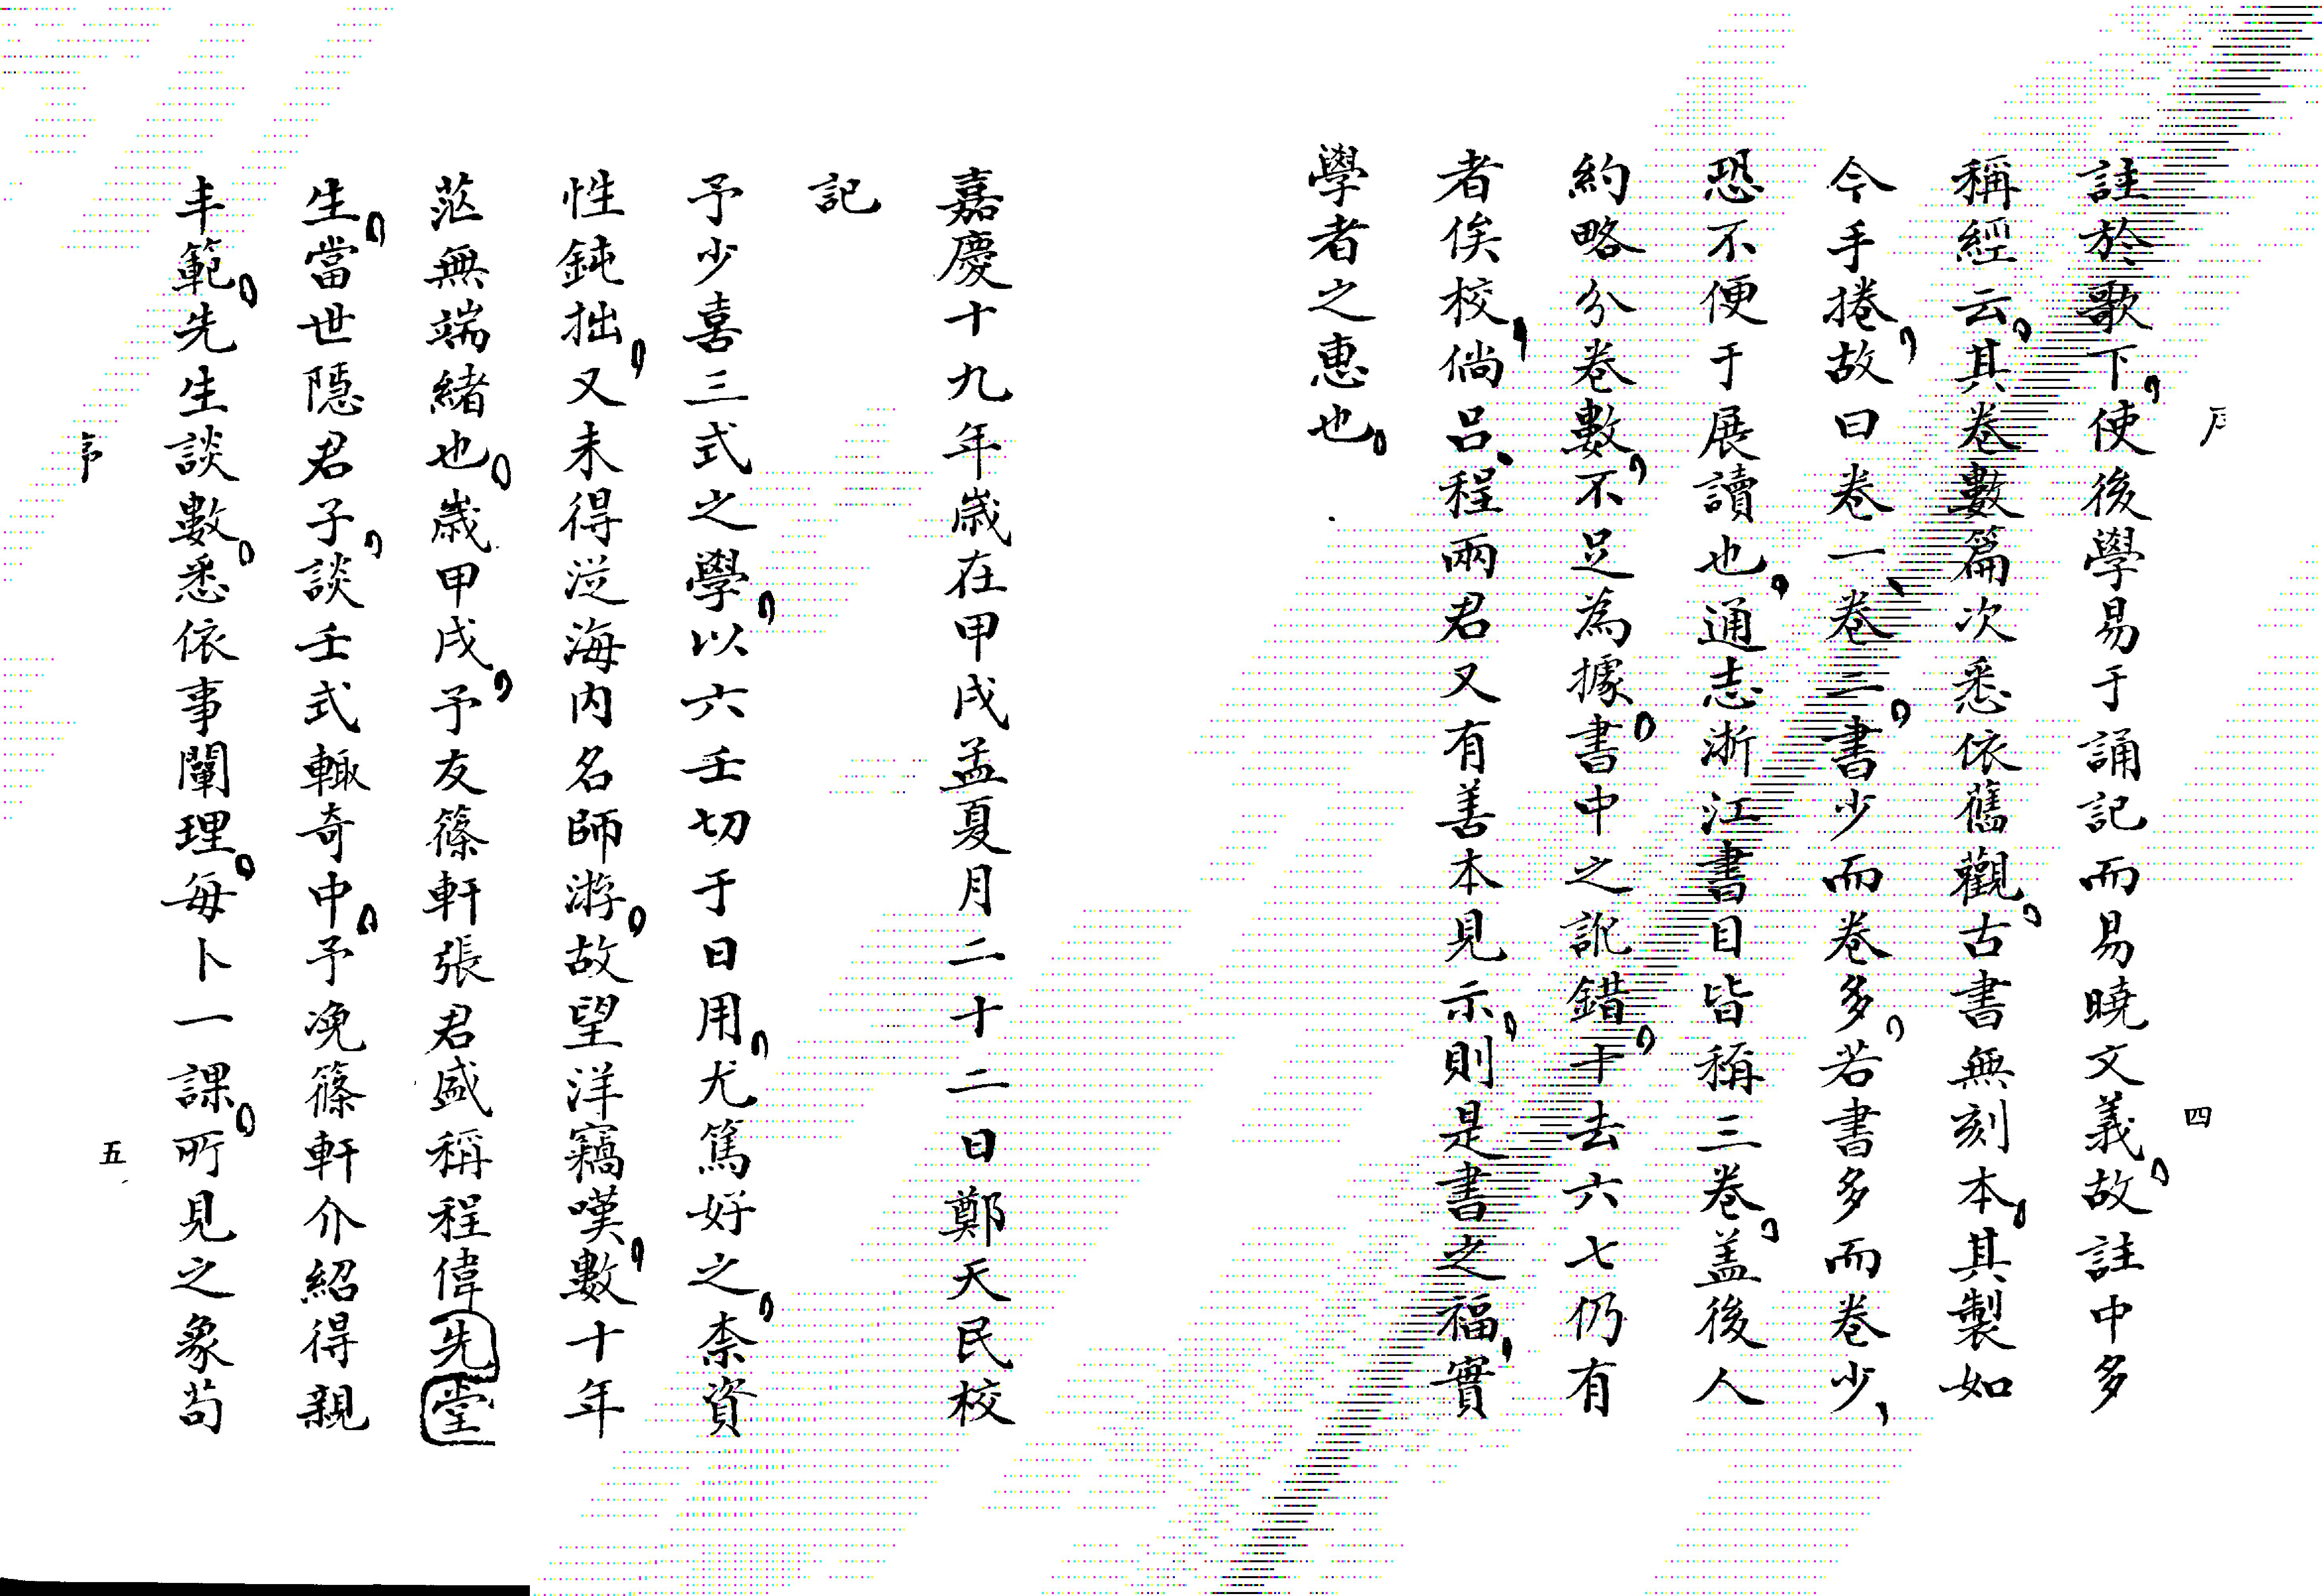 四
註於歌下使後學易于誦記而易曉文義故註中多
稱經云其卷數篇次悉依舊觀古書無刻本其製如
今手捲故曰卷一卷二書少而卷多若書多而卷少
恐不便于展讀也通志浙江書目皆稱三卷盖後人
約略分卷數不足為據書中之訛錯十去六七仍有
者俟校倘呂程兩君又有善本見示則是書之福實
學者之惠也
嘉慶十九年歲在甲戌孟夏月二十二日鄭天民校
記
予少喜三式之學以六壬切于日用尤篤好之柰資
性鈍拙又未得從海內名師游故望洋竊嘆數十年
茫無端緒也歲甲戌予友篠軒張君盛稱程偉堂先
生當世隱君子談壬式輙奇中予浼篠軒介紹得親
丰範先生談數悉依事闡理每卜一課所見之象苟
五